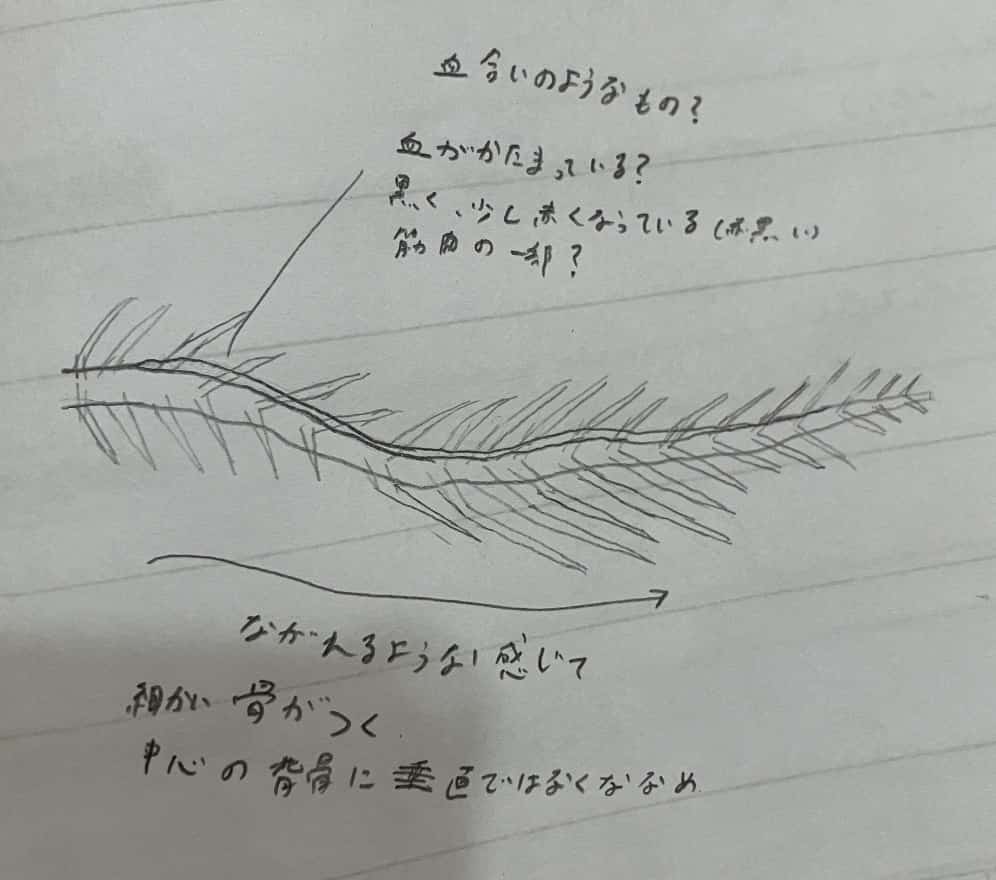 血合いのようなもの?
血がかたまっている?
黒く、少し赤くなっている(赤黒い)
筋肉の一部?
ながれるような感じで
細かい骨がつく
中心の背骨に垂直ではなくななめ